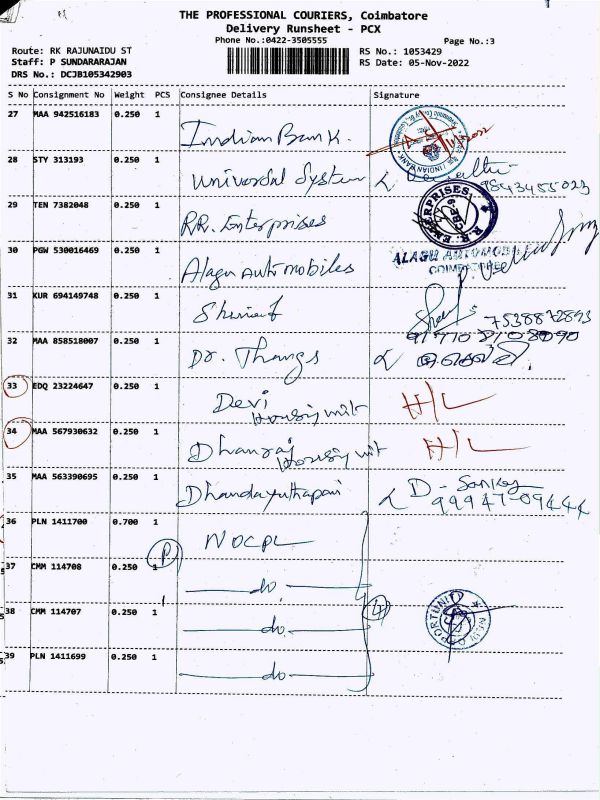 THE PROFESSIONAL COURIERS, Coimbatore
Delivery Runsheet - PCX
Phone No.:0422-3505555
Page No.:3
Route: RK RAJUNAIDU ST
RS No.: 1053429
Staff: P SUNDARARAJAN
RS Date: 05-Nov-2022
DRS No.: DCJB105342903
S No Consignment No Weight PCS Consignee Details Signature
27 MAA 942516183 0.250 1 Indian Bank.
28 STY 313193 0.250 1 Universal System 9843455023
29 TEN 7382048 0.250 1 R.R. Enterprises R.R. ENTERPRISES CBE-9
30 PGW 530016469 0.250 1 Alagu Automobiles ALAGU AUTOMOBILES
COIMBATORE
31 KUR 694149748 0.250 1 7538872893
32 MAA 858518007 0.250 1 Dr. Thangs
33 EDQ 23224647 0.250 1 Devi H/L
34 MAA 567930632 0.250 1 Dhanraj H/L
35 MAA 563390695 0.250 1 Dhandayuthapani D - Sankar
99947-09444
36 PLN 1411700 0.700 1 NOCPL
37 CMM 114708 0.250 1 do.
38 CMM 114707 0.250 1 do.
39 PLN 1411699 0.250 1 do.